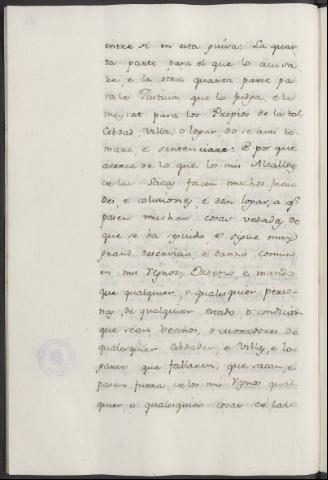 entre si en esta guisa: La quar
ta parte para el que lo acusa
re, e la otra quarta parte pa
ra la Justicia que lo judga, e la
meytat para los Propios de la tal
Cibdad, Villa, o logar, do se assi to
mare, e sentenciare: E por que
acerca de lo que los mis Alcalles
de las Sacas facen muchos frau
des, e colusiones, e dan logar, a q.
pasen muchas cosas vedadas, de
que se ha seguido, e sigue muy
grand deservicio, e danno comun
en mis Regnos, Ordeno, e mando
que qualquier, o qualesquier perso
nas, de qualquier estado, o condicion
que sean, vecinos, o moradores de
qualesquier Cibdades, e Villas, e lo
gares que fallaren, que sacan, e
pasan fuera de los mis Regnos qual
quier, o qualesquier cosas de las